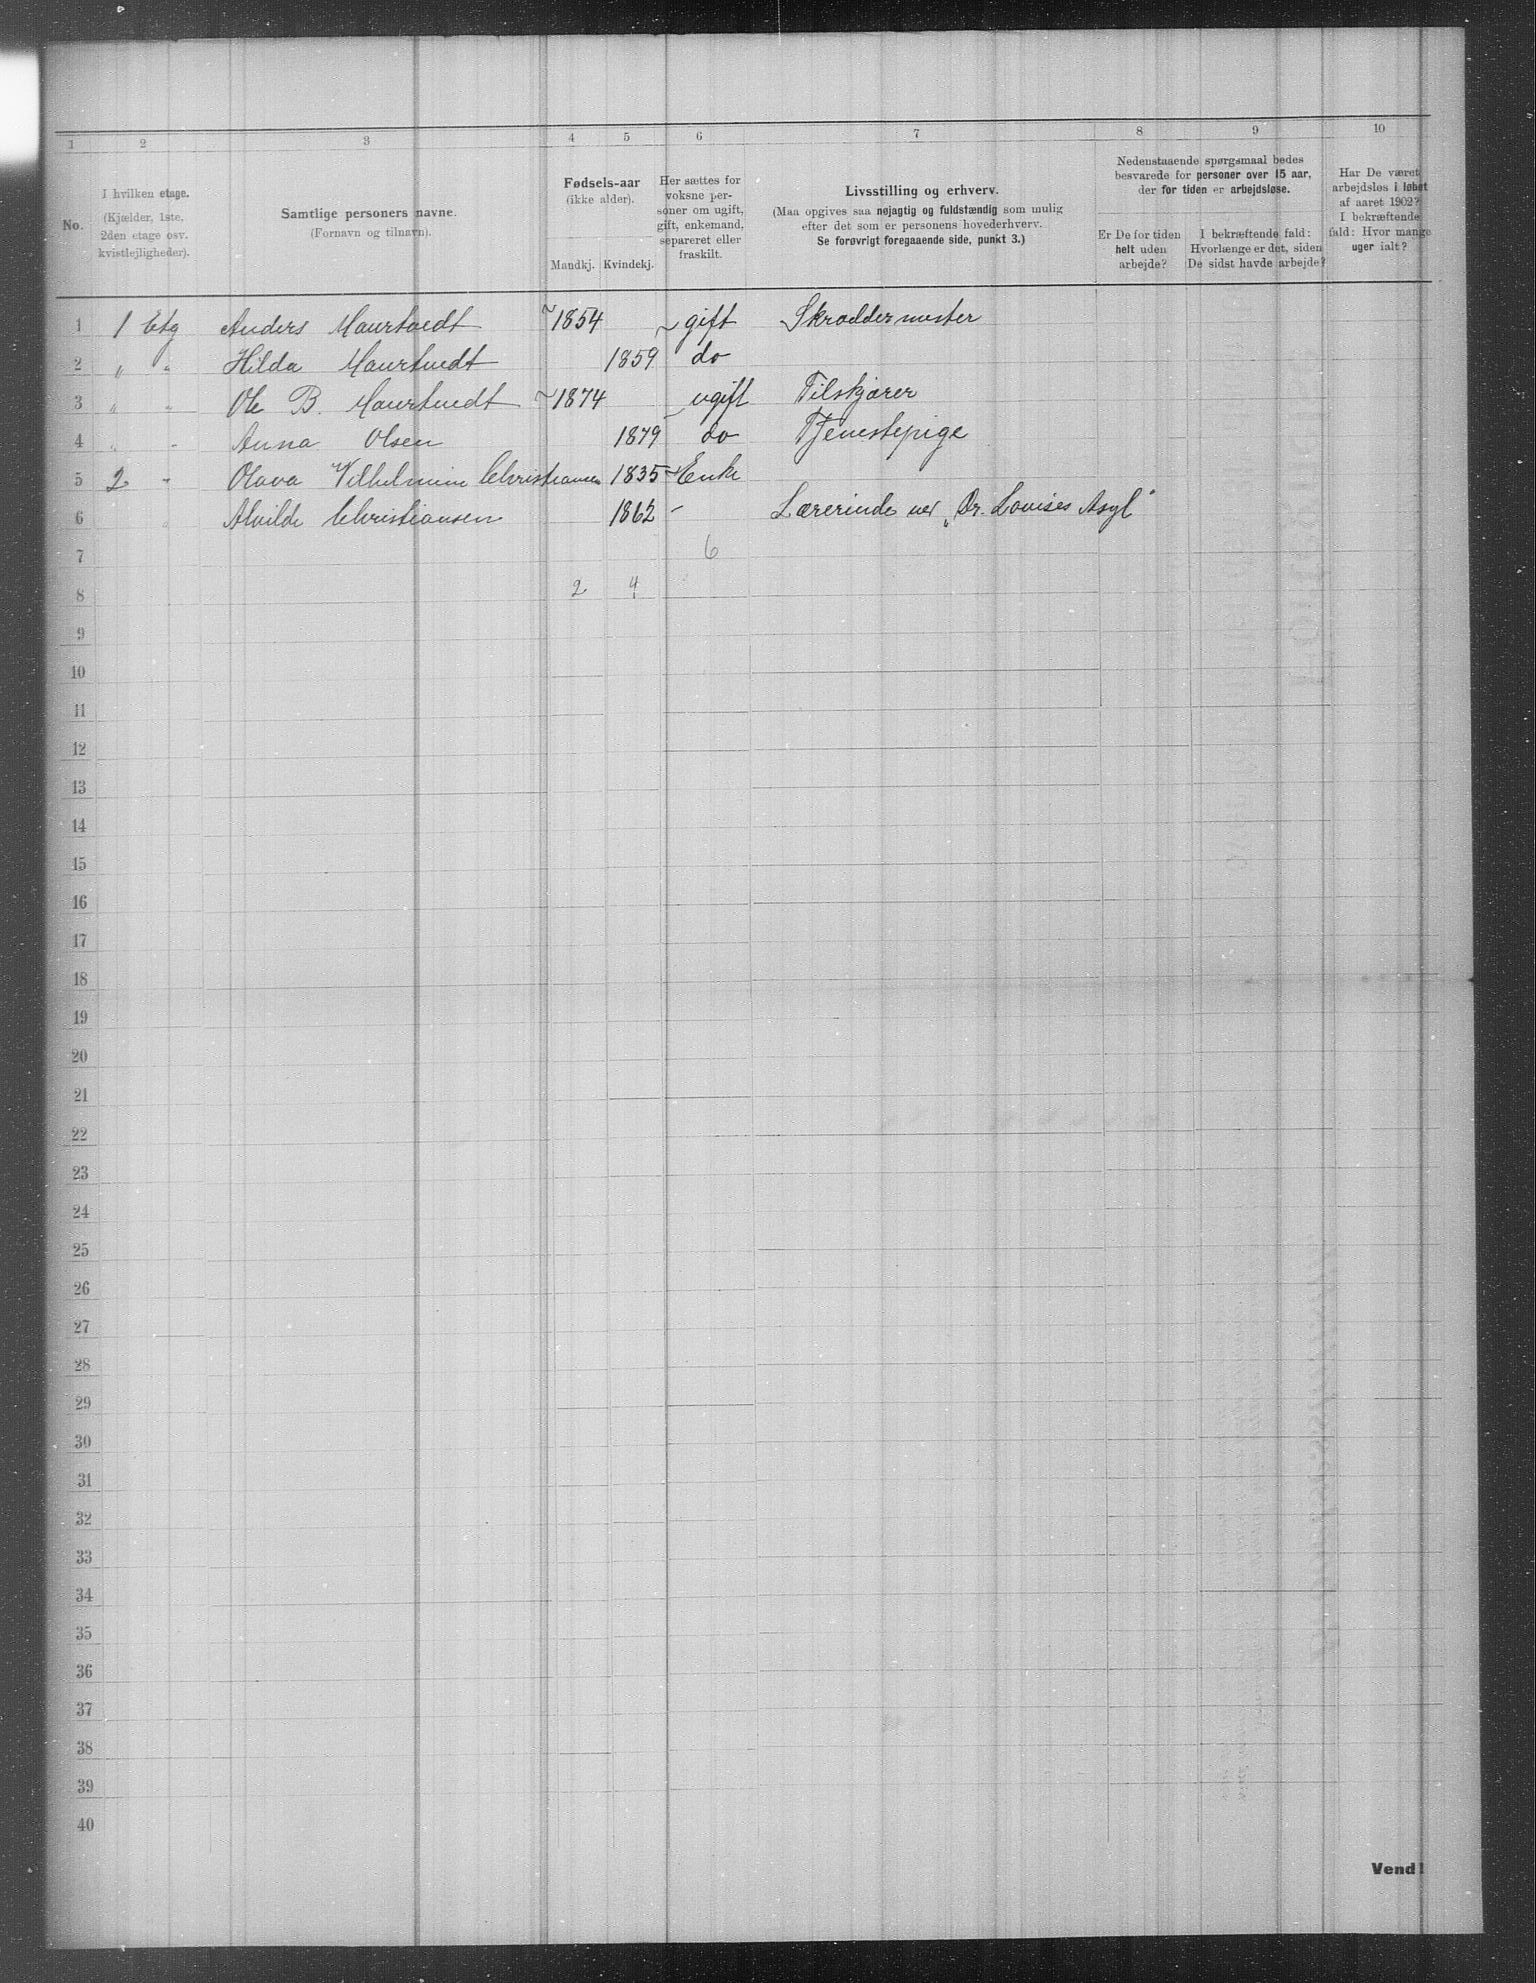 1 2 3 4 5 6 7 8 9 10
No.
I hvilken etage.
(Kjælder, 1ste,
2den etage osv.
kvistlejligheder).
Samtlige personers navne.
(Fornavn og tilnavn).
Fødsels-aar
(ikke alder).
Mandkj. Kvindekj.
Her sættes for
voksne per-
soner om ugift,
gift, enkemand,
separeret eller
fraskilt.
Livsstilling og erhverv.
(Maa opgives saa nøjagtig og fuldstændig som mulig
efter det som er personens hovederhverv.
Se forøvrigt foregaaende side, punkt 3.)
Nedenstaaende spørgsmaal bedes
besvarede for personer over 15 aar,
der for tiden er arbejdsløse.
Er De for tiden
helt uden
arbejde?
I bekræftende fald:
Hvorlænge er det, siden
De sidst havde arbejde?
Har De været
arbejdsløs i løbet
af aaret 1902?
I bekræftende
fald: Hvor mange
uger ialt?
1 1 Etg Anders Maurtvedt 1854 gift Skræddermester
2 " " Hilda Maurtvedt 1859 do
3 " " Ole B. Maurtvedt 1874 ugift Tilskjærer
4 " " Anna Olsen 1879 do Tjenestepige
5 2 " Olava Vilhelmine Christiansen 1835 Enke
6 " Alvilde Christiansen 1862 - Lærerinde ved "Dr. Louises Asyl"
7 6
8 2 4
9
10
11
12
13
14
15
16
17
18
19
20
21
22
23
24
25
26
27
28
29
30
31
32
33
34
35
36
37
38
39
40
Vend!